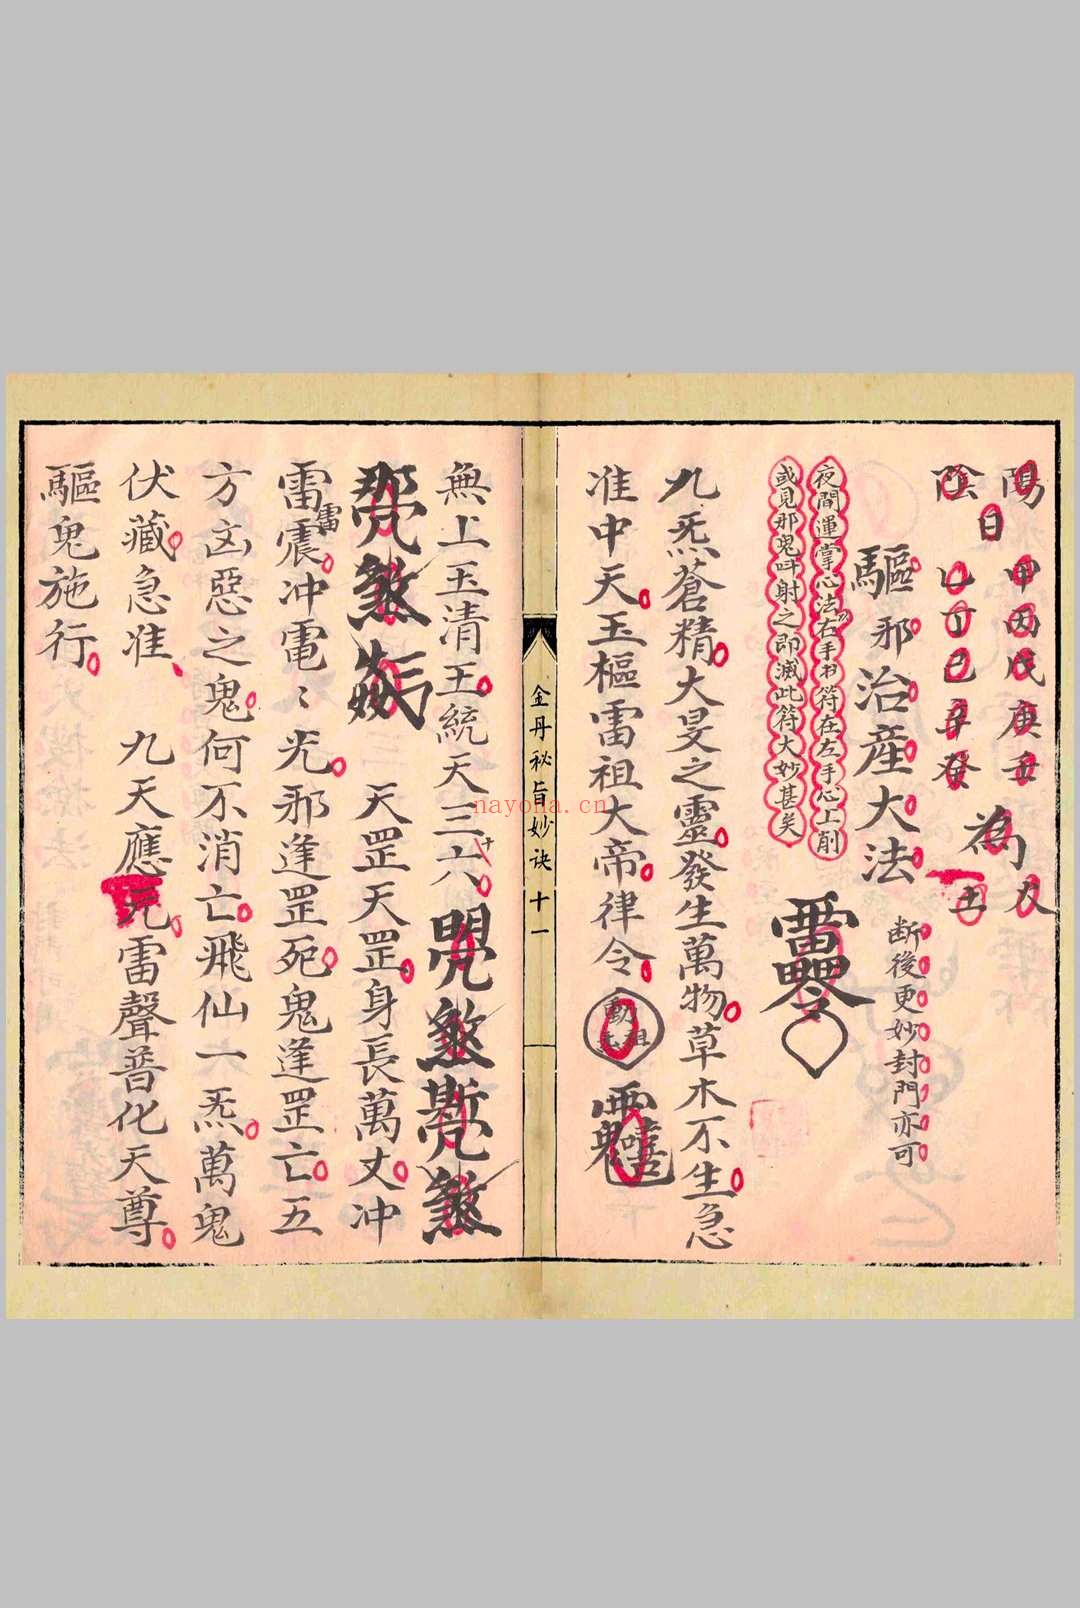 陽 甲丙戊庚壬
日 為
陰 乙丁己辛癸
驅邪治產大法
断後更妙封門亦可
夜間運掌心法右手书符在左手心上削
或見邪鬼吽射之即滅此符大妙甚矣
九炁蒼精大旻之靈發生萬物草木不生急
准中天玉樞雷祖大帝律令
金丹秘旨妙诀 十一
無上玉清王統天三十六
天罡天罡身長萬丈冲
雷雷震冲電〻光邪逢罡死鬼逢罡亡五
方凶惡之鬼何不消亡飛仙一炁萬鬼
伏藏急准 九天應元雷聲普化天尊
驅鬼施行
nayona.cn